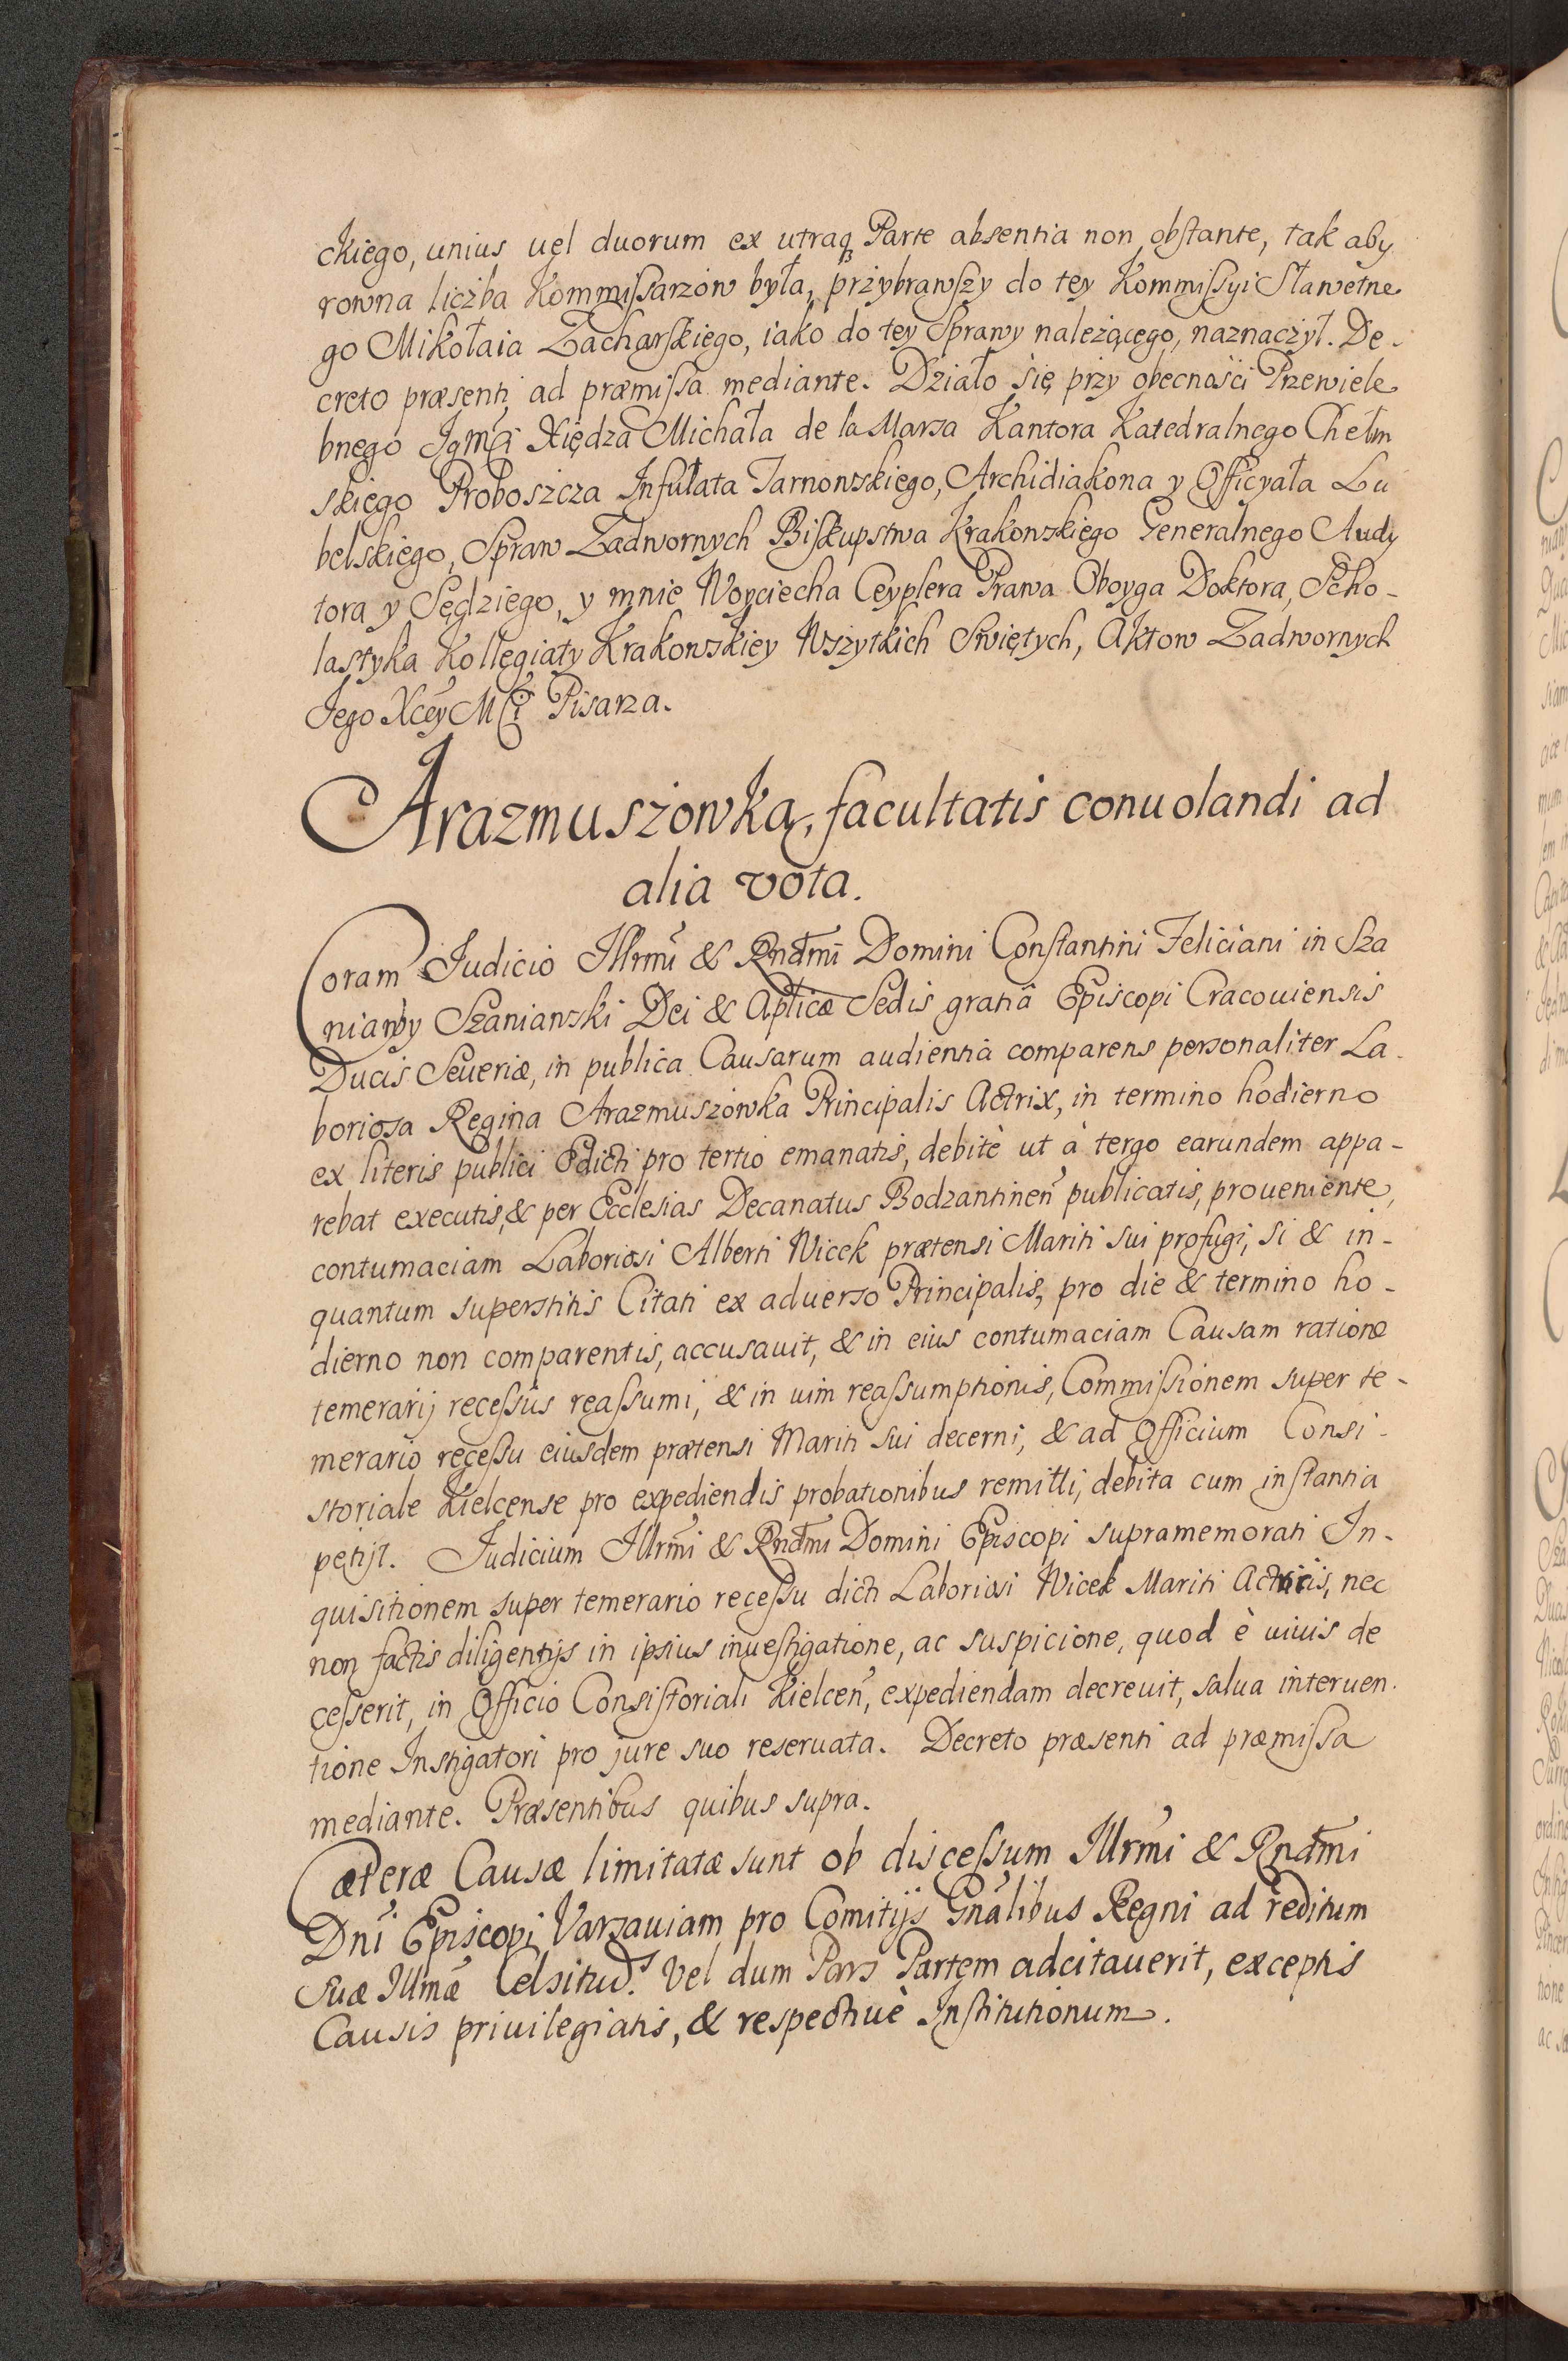 ckiego, unius uel duorum ex utraq Parte absentia non obstante, tak aby
rowna liczba Kommissarzow była, przybrawszy do tey Kommissyi Sławetne
go Mikołaia Zacharskiego, iako do tey Sprawy należącego, naznaczył. De-
creto præsenti ad præmissa mediante. Działo się przy obecności Przewiele
bnego Jgmci Xiędza Michała de la Marsa Kantora Katedralnego Chełm
skiego Proboszcza Infułata Tarnowskiego, Archidiakona y Officyała Lu
belskiego, Spraw Zadwornych Biskupstwa Krakowskiego Generalnego Audy
tora y Sędziego, y mnie Woyciecha Ceyplera Prawa Oboyga Doktora, Scho-
lastyka Kollegiaty Krakowskiey Wszytkich Swiętych, Aktow Zadwornych
Jego Xcey Mci Pisarza.
Arazmuszowka, facultatis conuolandi ad
alia vota.
Coram Judicio Illrmi & Rndmi Domini Constantini Feliciani in Sza
niawy Szaniawski Dei & Aplicæ Sedis gratiâ Episcopi Cracouiensis
Ducis Seueriæ, in publica Causarum audientia comparens personaliter La-
boriosa Regina Arazmuszowka Principalis Actrix, in termino hodierno
ex literis publici Edicti pro tertio emanatis, debitè ut à tergo earundem appa-
rebat executis, & per Ecclesias Decanatus Bodzantinen publicatis, proueniente,
contumaciam Laboriosi Alberti Wicek prætensi Mariti sui profugi, si & in-
quantum superstitis Citati ex aduerso Principalis, pro die & termino ho-
dierno non comparentis, accusauit, & in eius contumaciam Causam ratione
temerarij recessûs reassumi, & in uim reassumptionis, Commissionem super te-
merario recessu eiusdem prætensi Mariti sui decerni, & ad Officium Consi-
storiale Kielcense pro expediendis probationibus remitti, debita cum instantia
petijt. Judicium Illrmi & Rndmi Domini Episcopi supramemorati In-
quisitionem super temerario recessu dicti Laboriosi Wicek Mariti Actricis, nec
non factis diligentijs in ipsius inuestigatione, ac suspicione, quod è uiuis de
cesserit, in Officio Consistoriali Kielcen, expediendam decreuit, salua interuen-
tione Instigatori pro jure suo reseruata. Decreto præsenti ad præmissa
mediante. Præsentibus quibus supra.
Cæteræ Causæ limitatæ sunt ob discessum Illrmi & Rndmi
Dni Episcopi Varsauiam pro Comitijs Gnalibus Regni ad reditum
Suæ Illmæ Celsitud.s Vel dum Pars Partem adcitauerit, exceptis
Causis priuilegiatis, & respectiuè Institutionum.